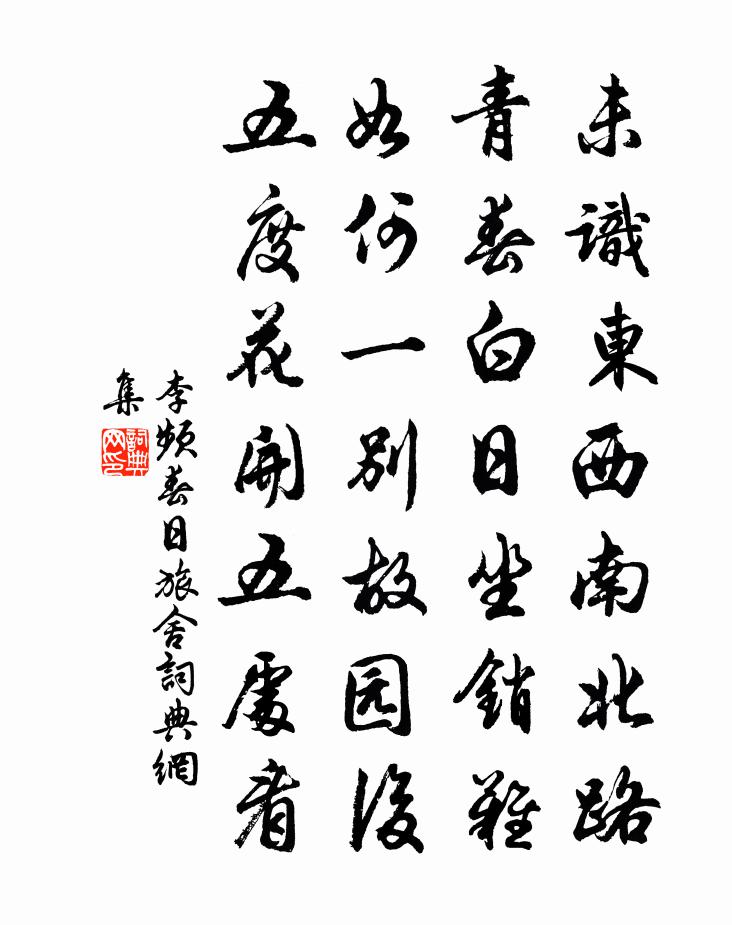 未識東西南北路
青春白日坐銷難
如何一別故园後
五度花開五處看
李頻春日旅舍詞典網
集
詞典網印